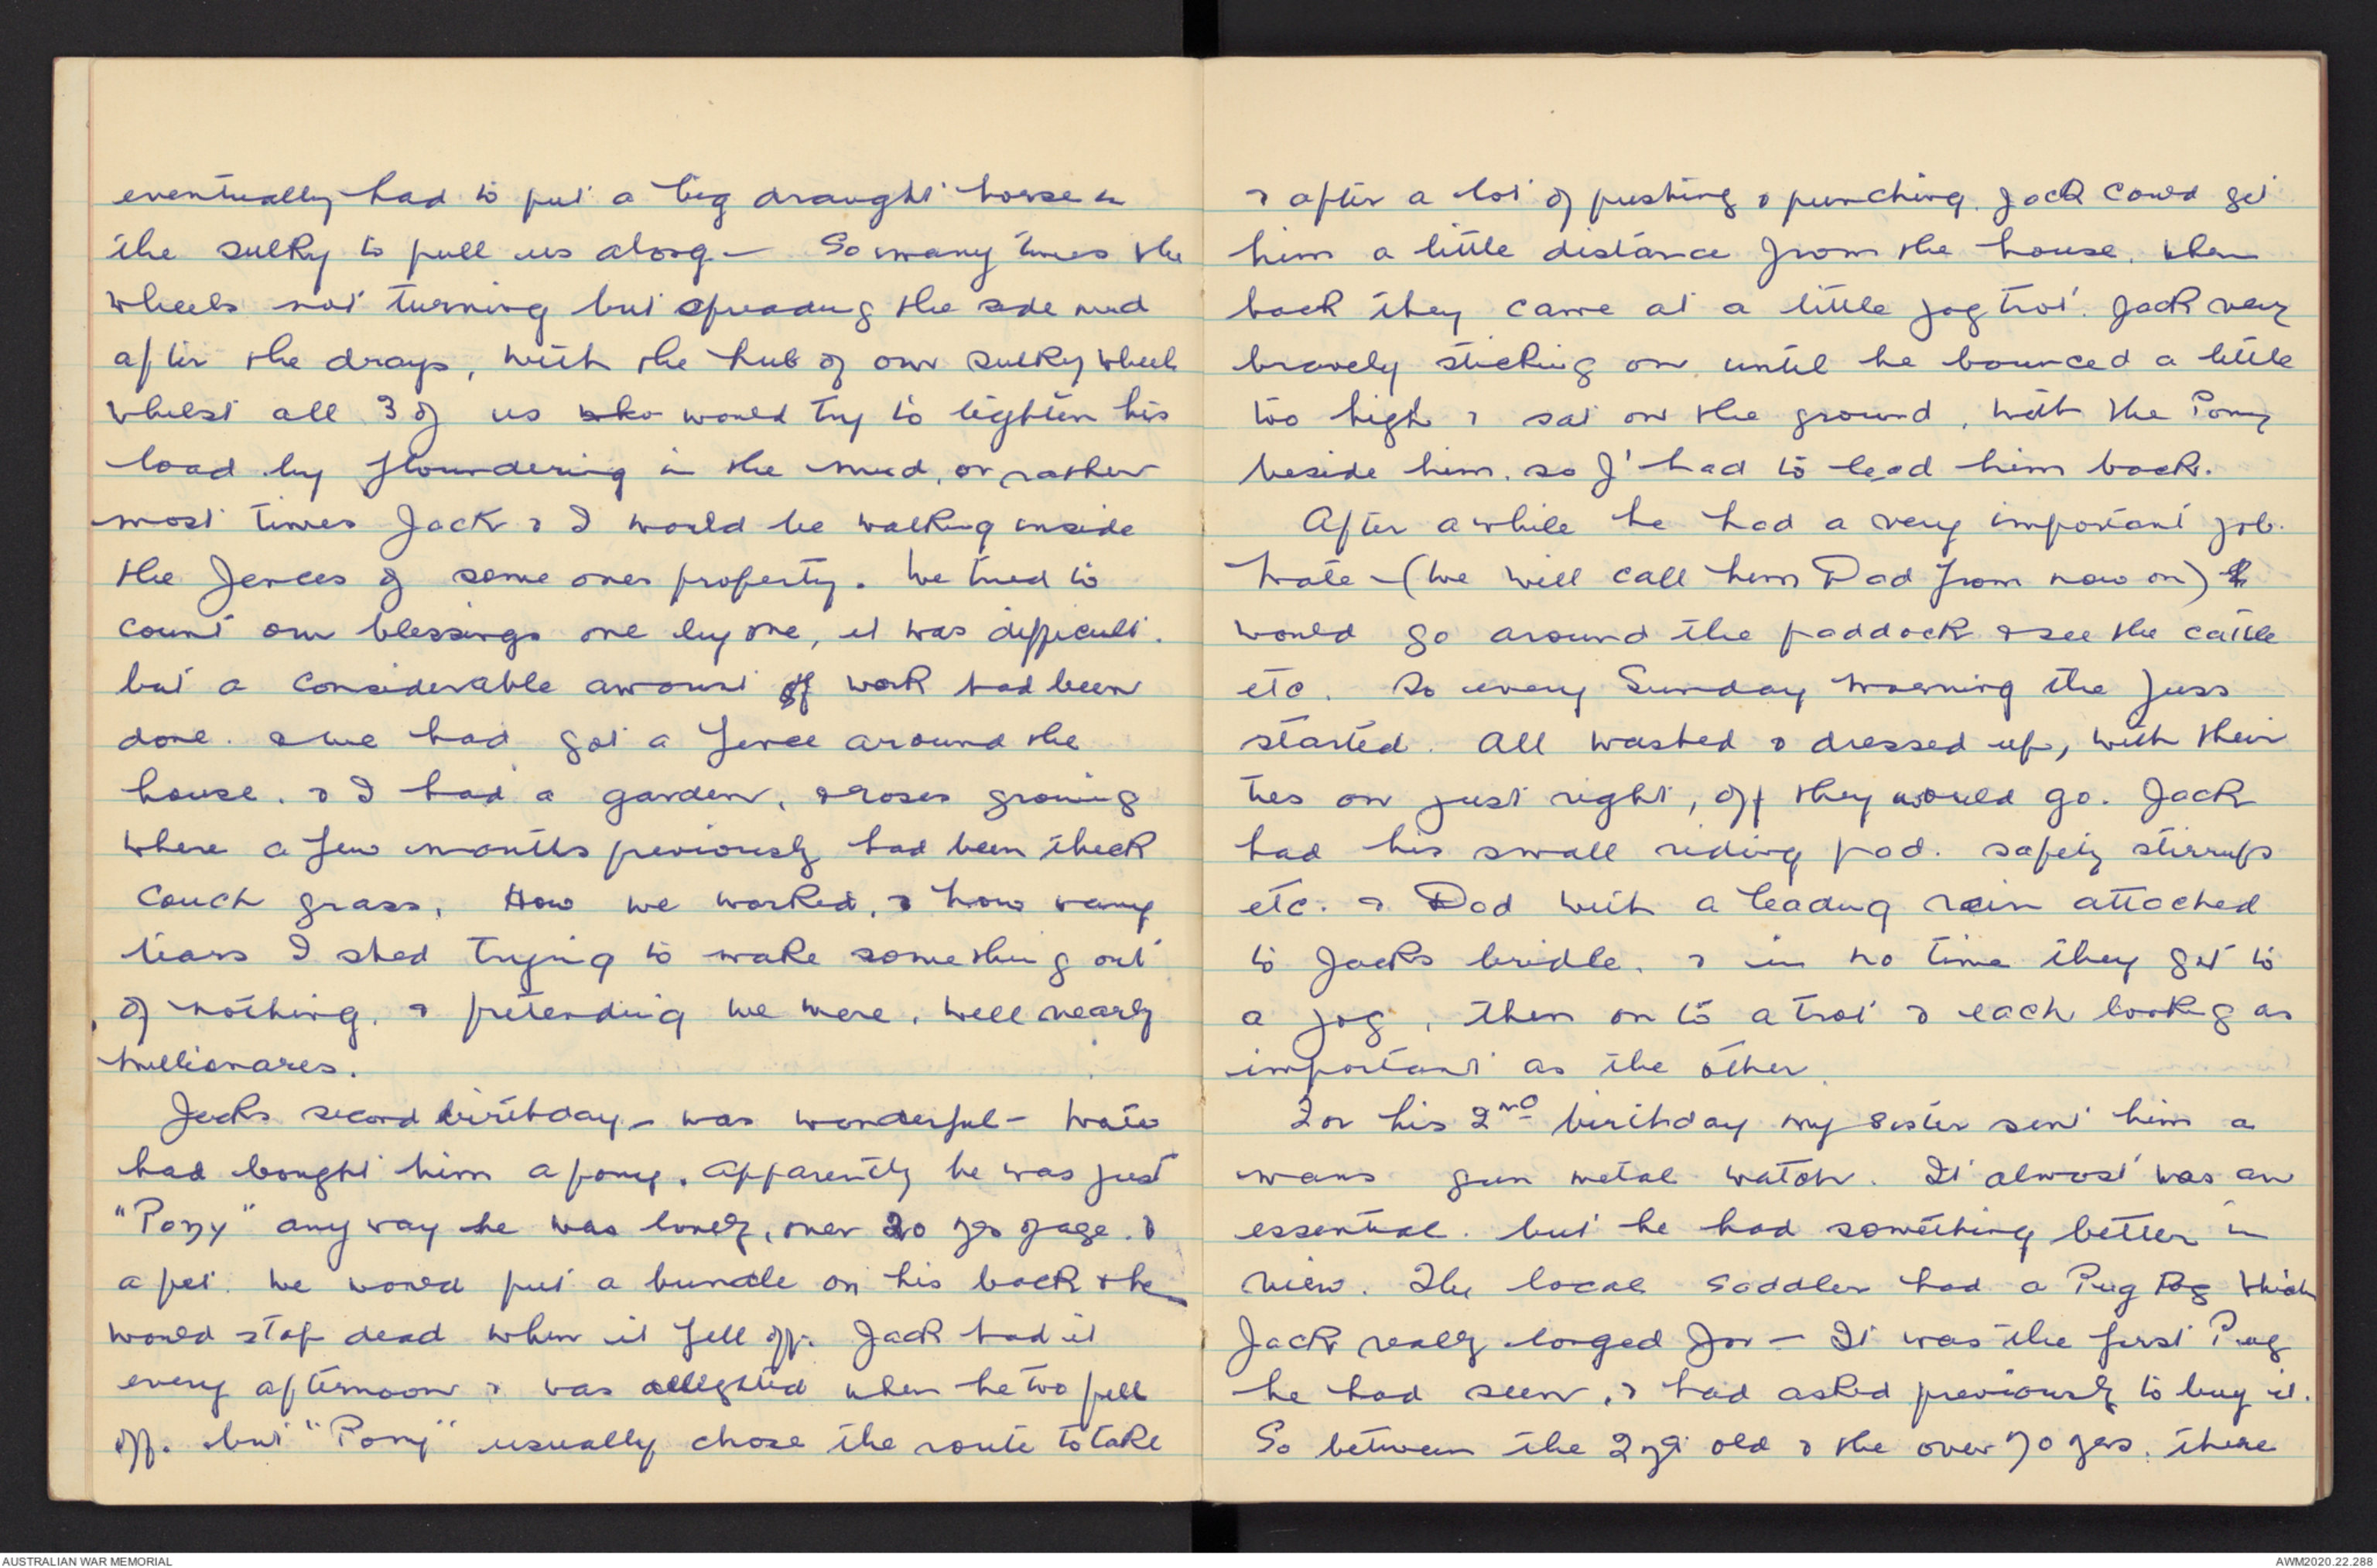 eventually had to put a big draught horse in
the sulky to pull us along - So many times the
wheels not turning but spreading the side mud
after the drays, with the hub of our sulky wheels
whilst all 3 of us would try to lighten his
load by floundering in the mud, or rather
most times Jack & I would be walking inside
the fences of some ones property. We tried to
count our blessings one by one, it was difficult.
but a considerable amount of work had been
done. & we had got a fence around the
house. & I had a garden, & roses growing
where a few months previously had been thick
couch grass, How we worked, & how many
tears I shed trying to make something out
of nothing, & pretending we were, well nearly
millionares.
Jacks second birthday - was wonderful - Mate
had bought him a pony. Apparently he was just
"Pony" any way he was lovely, over 20 yrs of age. &
a pet. We would put a bundle on his back & he
would stop dead when it fell off. Jack had it
every afternoon & was delighted when he too fell
off. but "Pony" usually chose the route to take
& after a lot of pushing & punching. Jack could get
him a little distance from the house, then
back they came at a little jog trot. Jack very
bravely sticking on until he bounced a little
too high & sat on the ground, with the Pony
beside him. so I had to lead him back.
After awhile he had a very important job.
Mate - (we will call him Dad from now on)
would go around the paddock & see the cattle
etc. So every Sunday morning the fuss
started. All washed & dressed up, with their
ties on just right, off they would go. Jack
had his small riding pad. safety stirrups
etc. & Dad with a leading rein attached
to Jacks bridle. & in no time they got to
a jog, then on to a trot & each looking as
important as the other.
For his 2nd birthday my sister sent him a
mans gun metal watch. It almost was an
essential. but he had something better in
view. The local saddler had a Pug Dog which
Jack really longed for - It was the first Pug
he had seen, & had asked previously to buy it.
So between the 2 yr old & the over 70 yrs. there
AUSTRALIAN WAR MEMORIAL
AWM2020.22.288